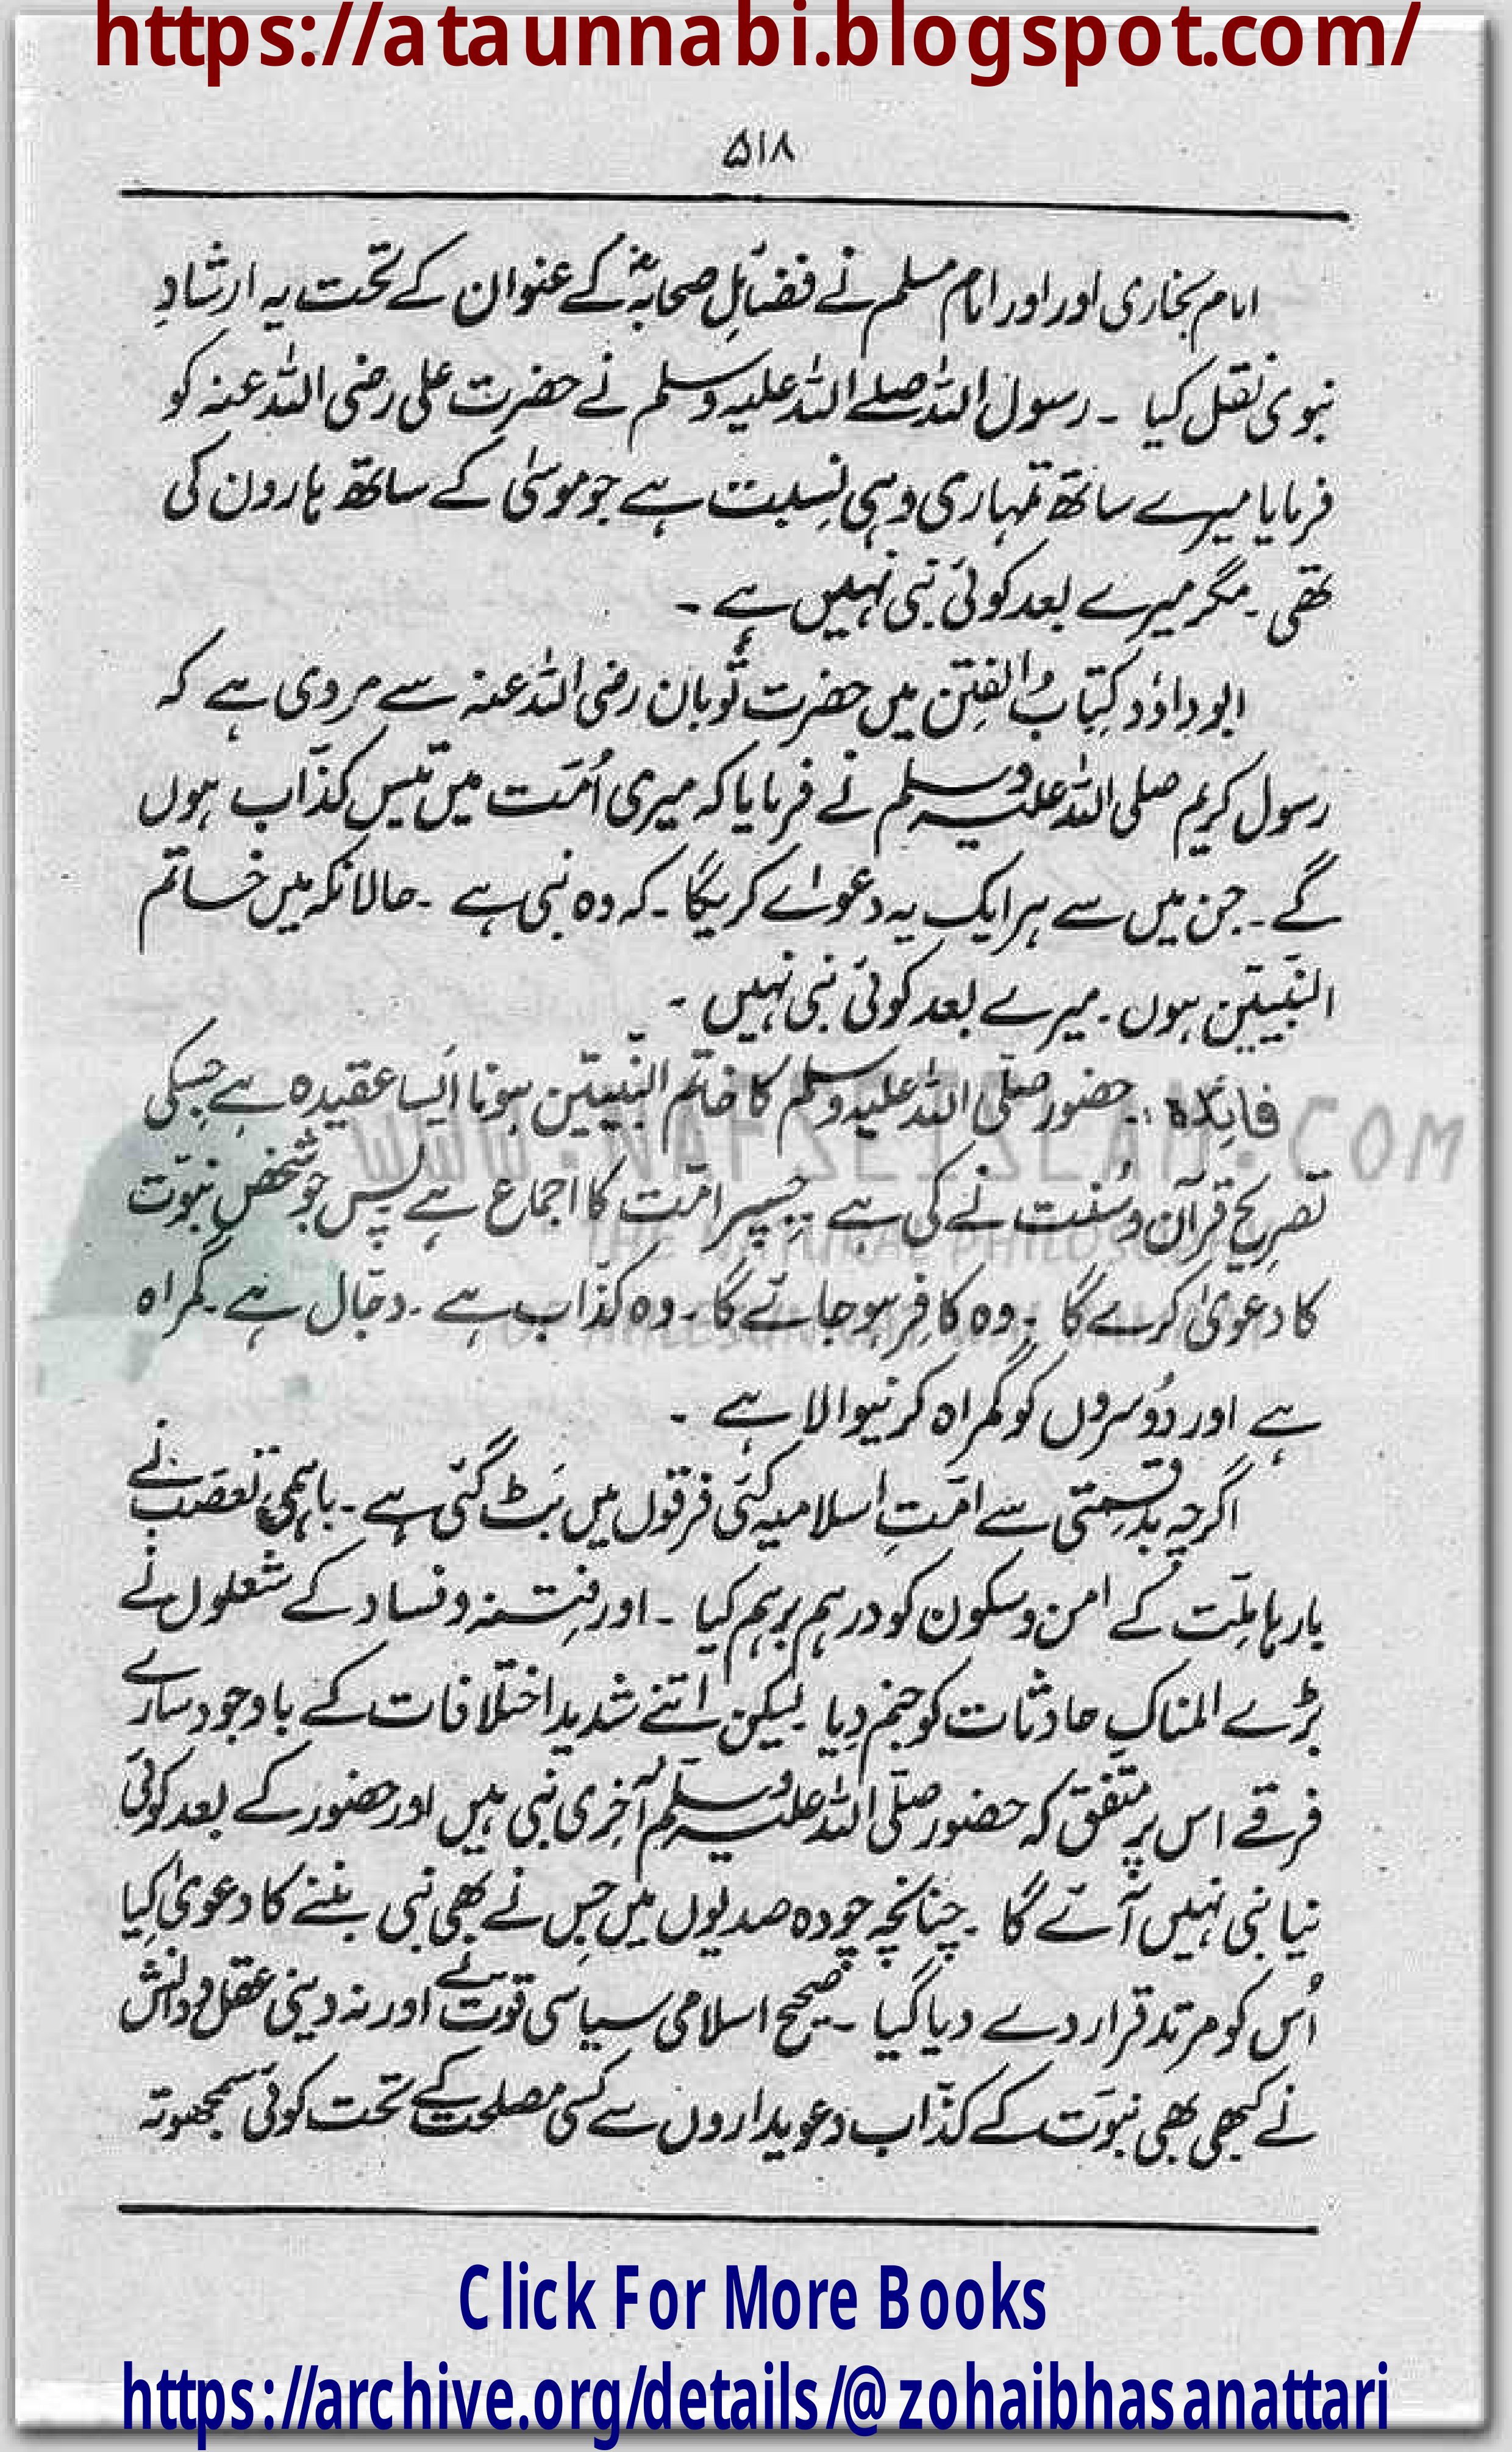 https://ataunnabi.blogspot.com/
۵۱۸
امام بخاری اور اور امام مسلم نے فضائلِ صحابہؓ کے عنوان کے تحت یہ ارشادِ
نبوی نقل کیا ۔ رسول اللہ صلے اللہ علیہ وسلم نے حضرت علی رضی اللہ عنہ کو
فرمایا میرے ساتھ تمہاری وہی نِسبت ہے جو موسیٰ کے ساتھ ہارون کی
تھی ۔ مگر میرے بعد کوئی نبی نہیں ہے ۔
ابو داؤد کِتابُ الفِتن میں حضرت ثوبان رضی اللہ عنہ سے مروی ہے کہ
رسول کریم صلی اللہ علیہ وسلم نے فرمایا کہ میری اُمّت میں تیس کذّاب ہوں
گے ۔ جن میں سے ہر ایک یہ دعوےٰ کریگا ۔ کہ وہ نبی ہے ۔ حالانکہ میں خاتم
النّبییّن ہوں ۔ میرے بعد کوئی نبی نہیں ۔
فائدہ : حضور صلّی اللہ علیہ وسلم کا خاتم النّبییّن ہونا ایسا عقیدہ ہے جسکی
تصریح قرآن و سُنت نے کی ہے ۔ جسپر امّت کا اجماع ہے پس جو شخص نبوّت
کا دعویٰ کرے گا ۔ وہ کافِر ہو جائے گا ۔ وہ کذّاب ہے ۔ دجّال ہے ۔ گمراہ
ہے اور دُوسروں کو گمراہ کرنیوالا ہے ۔
اگرچہ بدقسمتی سے امّتِ اسلامیہ کئی فرقوں میں بَٹ گئی ہے ۔ باہمی تعصّب نے
بارہا ملِّت کے امن و سکون کو درہم برہم کیا ۔ اور فِتنہ و فساد کے شعلوں نے
بڑے المناک حادثات کو جنم دِیا لیکن اتنے شدید اختلافات کے باوجود سارے
فرقے اس پر متفق کہ حضور صلّی اللہ علیہ وسلم آخِری نبی ہیں اور حضور کے بعد کوئی
نیا نبی نہیں آئے گا ۔ چنانچہ چودہ صدیوں میں جِس نے بھی نبی بننے کا دعویٰ کِیا
اُس کو مرتد قرار دے دیا گیا ۔ صحیح اسلامی سیاسی قوت نے اور نہ دینی عقل و دانش
نے کبھی بھی نبوّت کے کذّاب دعویداروں سے کسی مصلحت کے تحت کوئی سمجھوتہ
WWW.NAFSEISLAM.COM
Click For More Books
https://archive.org/details/@zohaibhasanattari